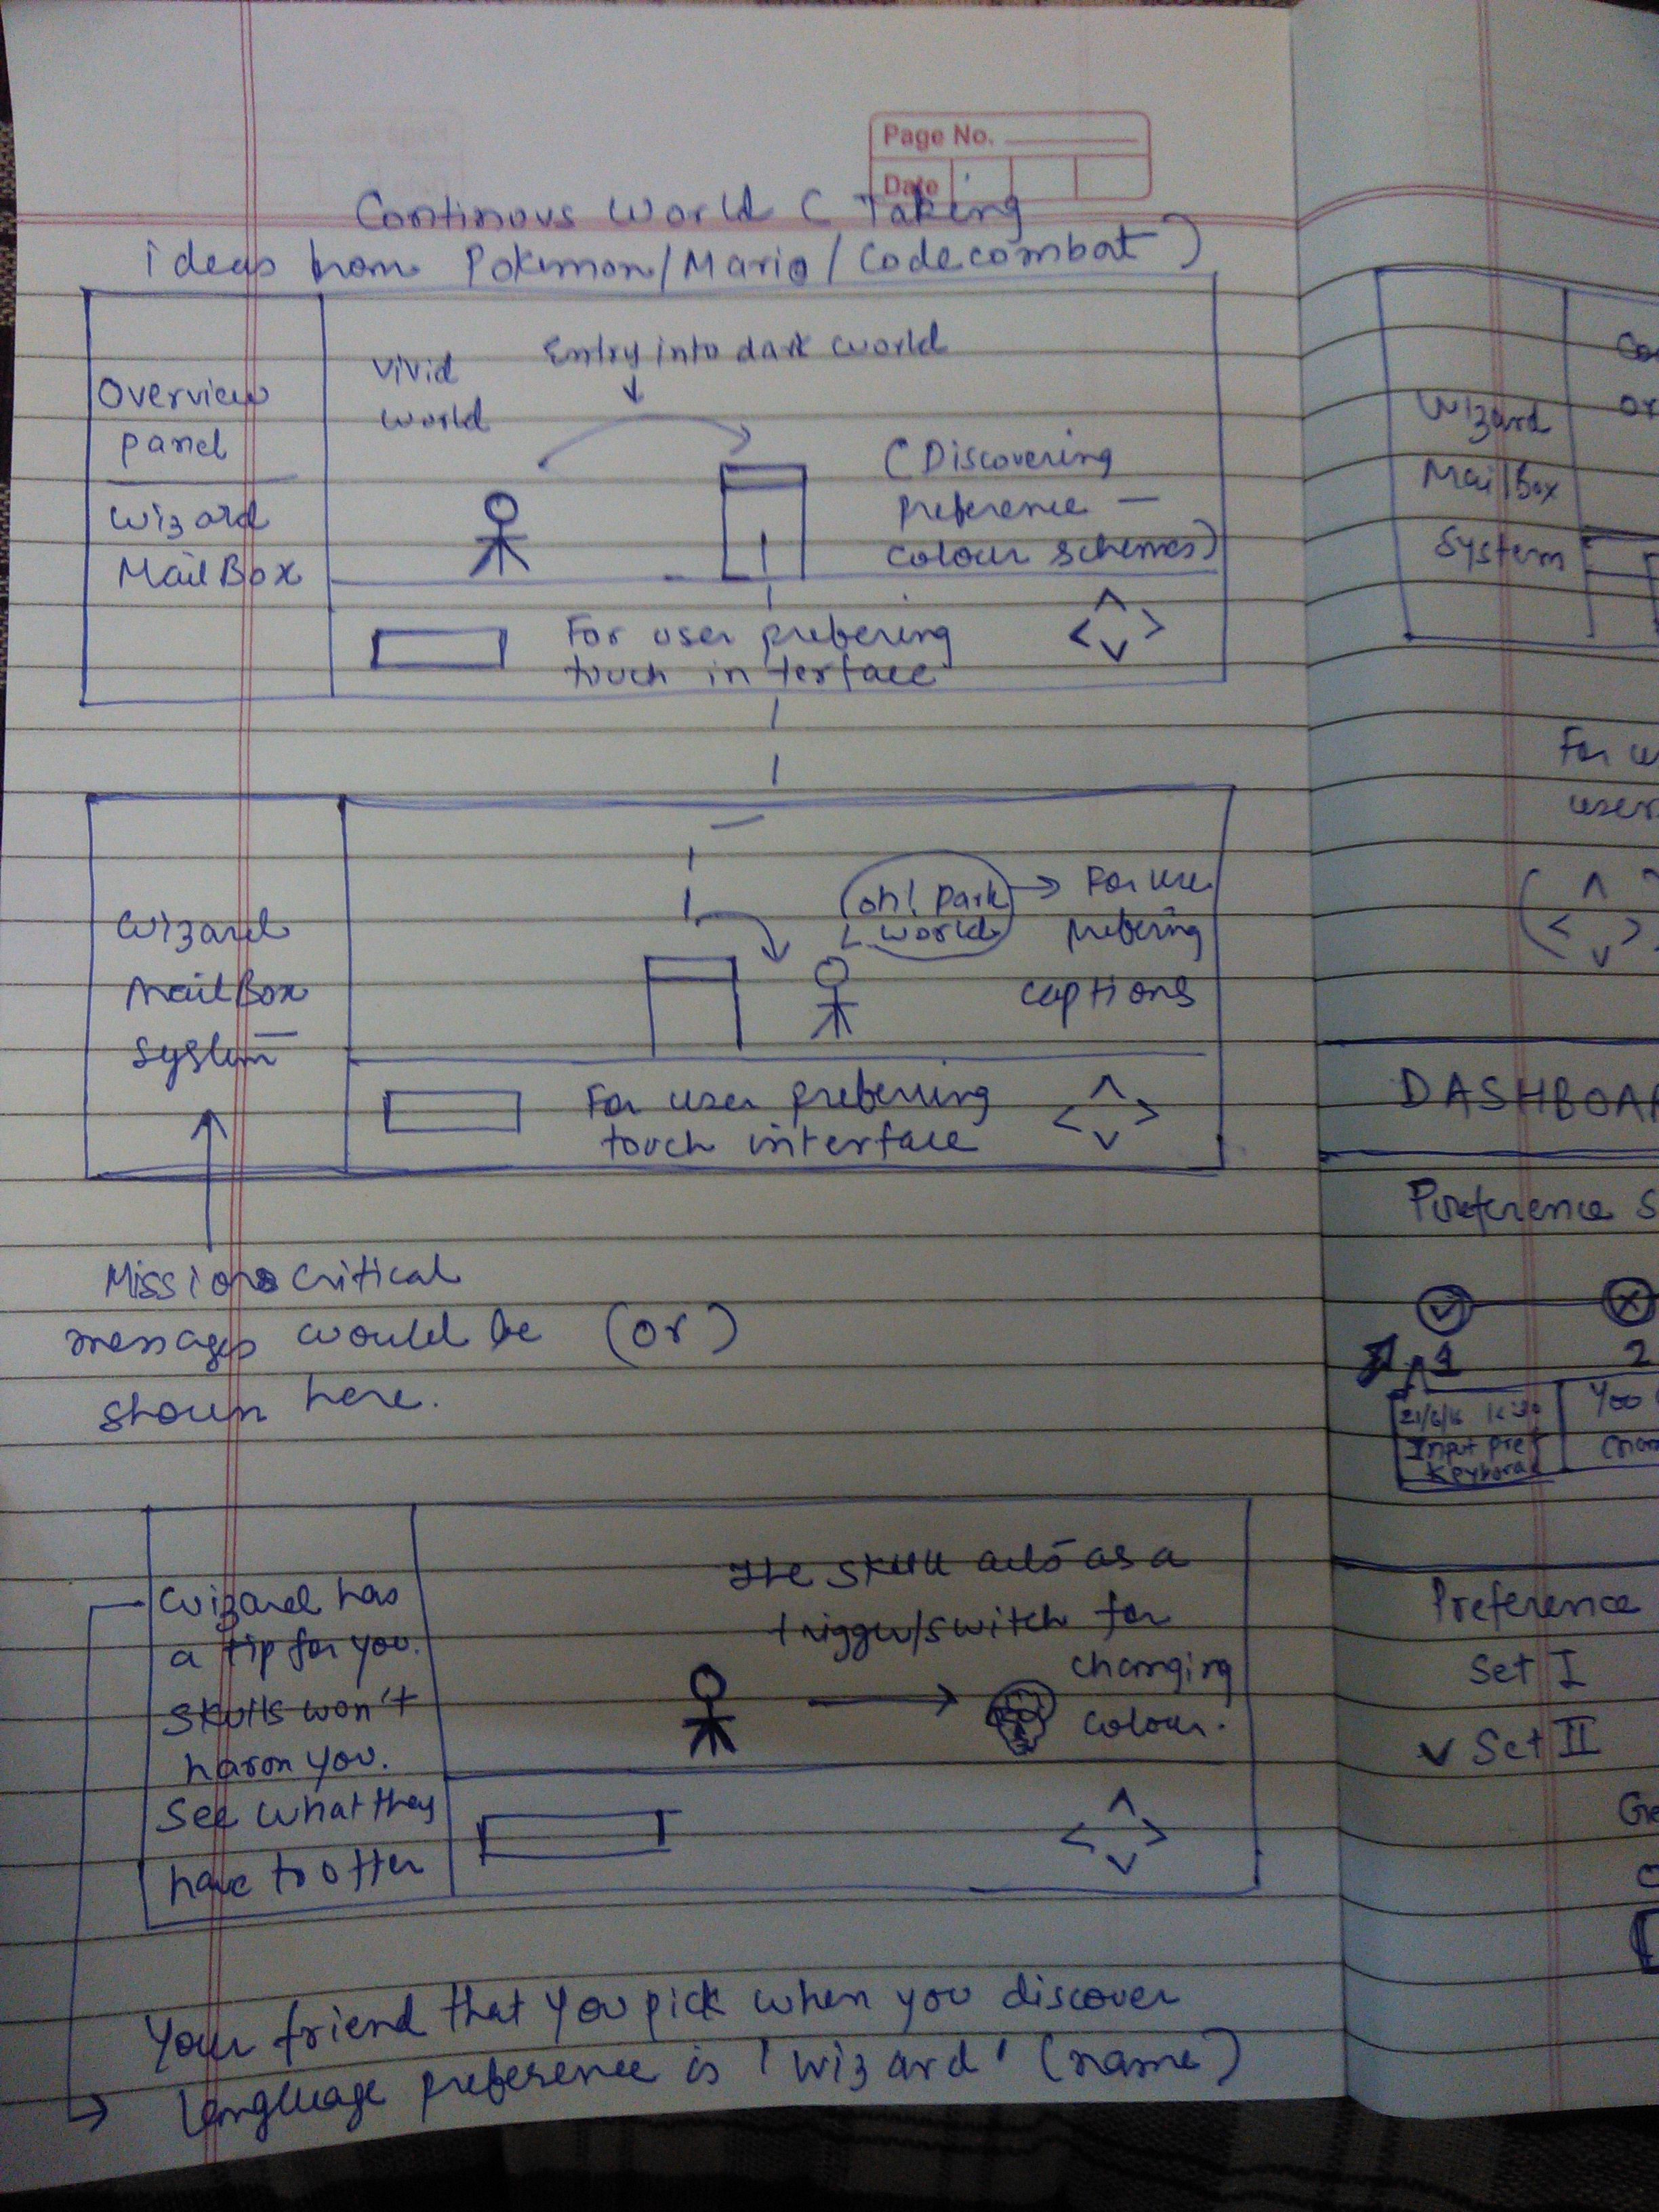 Page No.
Date
Continous World ( Taking
ideas from Pokemon/Mario/Codecombat)
Overview
panel
Wizard
MailBox
Vivid
world
Entry into dark world
( Discovering
preference —
colour schemes)
For user prefering
touch interface
Wizard
MailBox
System
oh! Dark
world
For use
prefering
captions
For user preferring
touch interface
Mission critical
messages would be (or)
shown here.
Wizard has
a tip for you.
Skulls won't
harm you.
See what they
have to offer
The skull acts as a
trigger/switch for
changing
colour.
Your friend that you pick when you discover
language preference is 'Wizard' (name)
Wizard
MailBox
System
or
For u
user
DASHBOAR
Preference S
1
2
21/6/16
Input pref
Keyboard
You
Preference
Set I
Set II